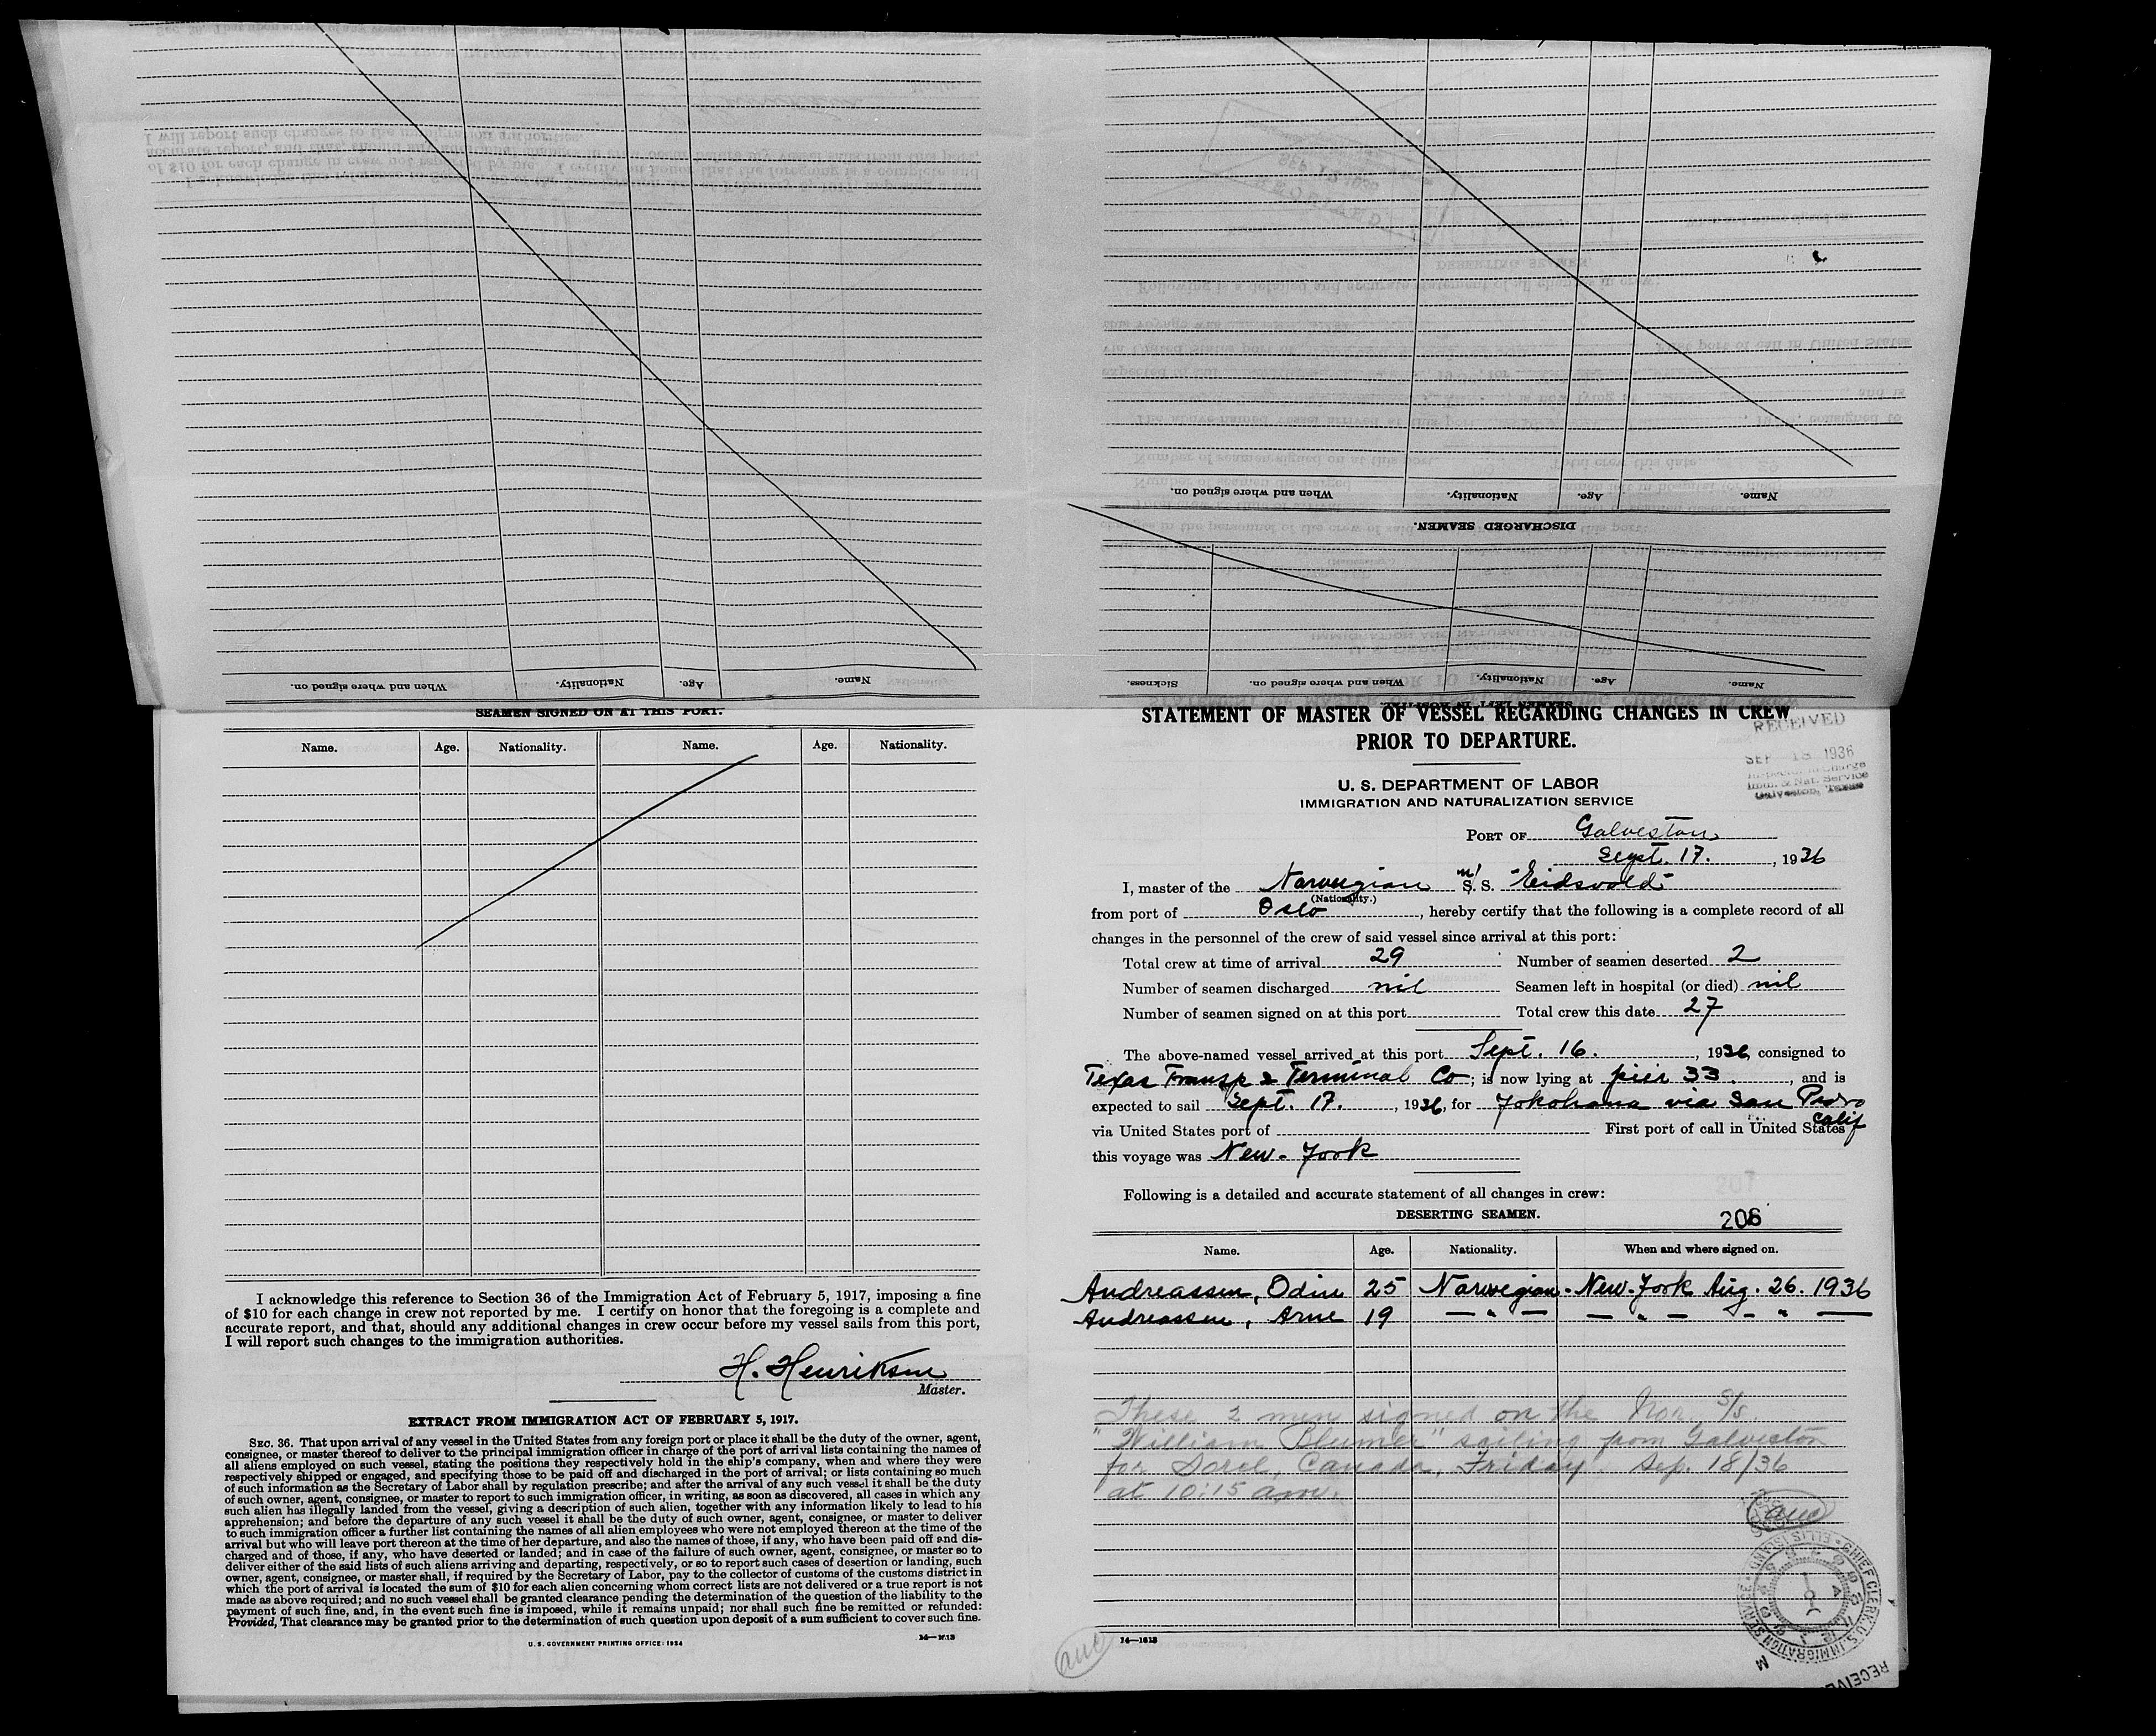 When and where signed on. Nationality. Age. Name.
When and where signed on. Nationality. Age. Name.
DISCHARGED SEAMEN.
Sickness. When and where signed on. Nationality. Age. Name.
SEAMEN LEFT IN HOSPITAL.
SEAMEN SIGNED ON AT THIS PORT.
Name. Age. Nationality. Name. Age. Nationality.
I acknowledge this reference to Section 36 of the Immigration Act of February 5, 1917, imposing a fine
of $10 for each change in crew not reported by me. I certify on honor that the foregoing is a complete and
accurate report, and that, should any additional changes in crew occur before my vessel sails from this port,
I will report such changes to the immigration authorities.
H. Henriksen
Master.
EXTRACT FROM IMMIGRATION ACT OF FEBRUARY 5, 1917.
SEC. 36. That upon arrival of any vessel in the United States from any foreign port or place it shall be the duty of the owner, agent,
consignee, or master thereof to deliver to the principal immigration officer in charge of the port of arrival lists containing the names of
all aliens employed on such vessel, stating the positions they respectively hold in the ship's company, when and where they were
respectively shipped or engaged, and specifying those to be paid off and discharged in the port of arrival; or lists containing so much
of such information as the Secretary of Labor shall by regulation prescribe; and after the arrival of any such vessel it shall be the duty
of such owner, agent, consignee, or master to report to such immigration officer, in writing, as soon as discovered, all cases in which any
such alien has illegally landed from the vessel, giving a description of such alien, together with any information likely to lead to his
apprehension; and before the departure of any such vessel it shall be the duty of such owner, agent, consignee, or master to deliver
to such immigration officer a further list containing the names of all alien employees who were not employed thereon at the time of the
arrival but who will leave port thereon at the time of her departure, and also the names of those, if any, who have been paid off and dis-
charged and of those, if any, who have deserted or landed; and in case of the failure of such owner, agent, consignee, or master so to
deliver either of the said lists of such aliens arriving and departing, respectively, or so to report such cases of desertion or landing, such
owner, agent, consignee, or master shall, if required by the Secretary of Labor, pay to the collector of customs of the customs district in
which the port of arrival is located the sum of $10 for each alien concerning whom correct lists are not delivered or a true report is not
made as above required; and no such vessel shall be granted clearance pending the determination of the question of the liability to the
payment of such fine, and, in the event such fine is imposed, while it remains unpaid; nor shall such fine be remitted or refunded:
Provided, That clearance may be granted prior to the determination of such question upon deposit of a sum sufficient to cover such fine.
U. S. GOVERNMENT PRINTING OFFICE: 1934
14—1613
STATEMENT OF MASTER OF VESSEL REGARDING CHANGES IN CREW
PRIOR TO DEPARTURE.
RECEIVED
SEP 18 1936
Inspector in Charge
Imm. & Nat. Service
Galveston, Texas
U. S. DEPARTMENT OF LABOR
IMMIGRATION AND NATURALIZATION SERVICE
PORT OF Galveston
Sept. 17., 1936
I, master of the Norwegian m/ S. S. "Eidsvold"
(Nationality.)
from port of Oslo, hereby certify that the following is a complete record of all
changes in the personnel of the crew of said vessel since arrival at this port:
Total crew at time of arrival 29 Number of seamen deserted 2
Number of seamen discharged nil Seamen left in hospital (or died) nil
Number of seamen signed on at this port Total crew this date 27
The above-named vessel arrived at this port Sept. 16., 1936, consigned to
Texas Transp & Terminal Co; is now lying at pier 33., and is
expected to sail Sept. 17., 1936, for Yokohama via San Pedro
Calif
via United States port of First port of call in United States
this voyage was New-York
207
Following is a detailed and accurate statement of all changes in crew:
DESERTING SEAMEN.
206
Name. Age. Nationality. When and where signed on.
Andreassen, Odin 25 Norwegian - New-York Aug. 26. 1936
Andreassen, Arne 19 — " — — " — — " —
These 2 men signed on the Nor. S/s.
"William Blumer" sailing from Galveston
for Sorel, Canada, Friday Sep. 18/36
at 10:15 am.
auc
CHIEF CLERK, U.S. IMMIGRATION SERVICE. ELLIS ISLAND
RECEIVE
M
auc
14—1613